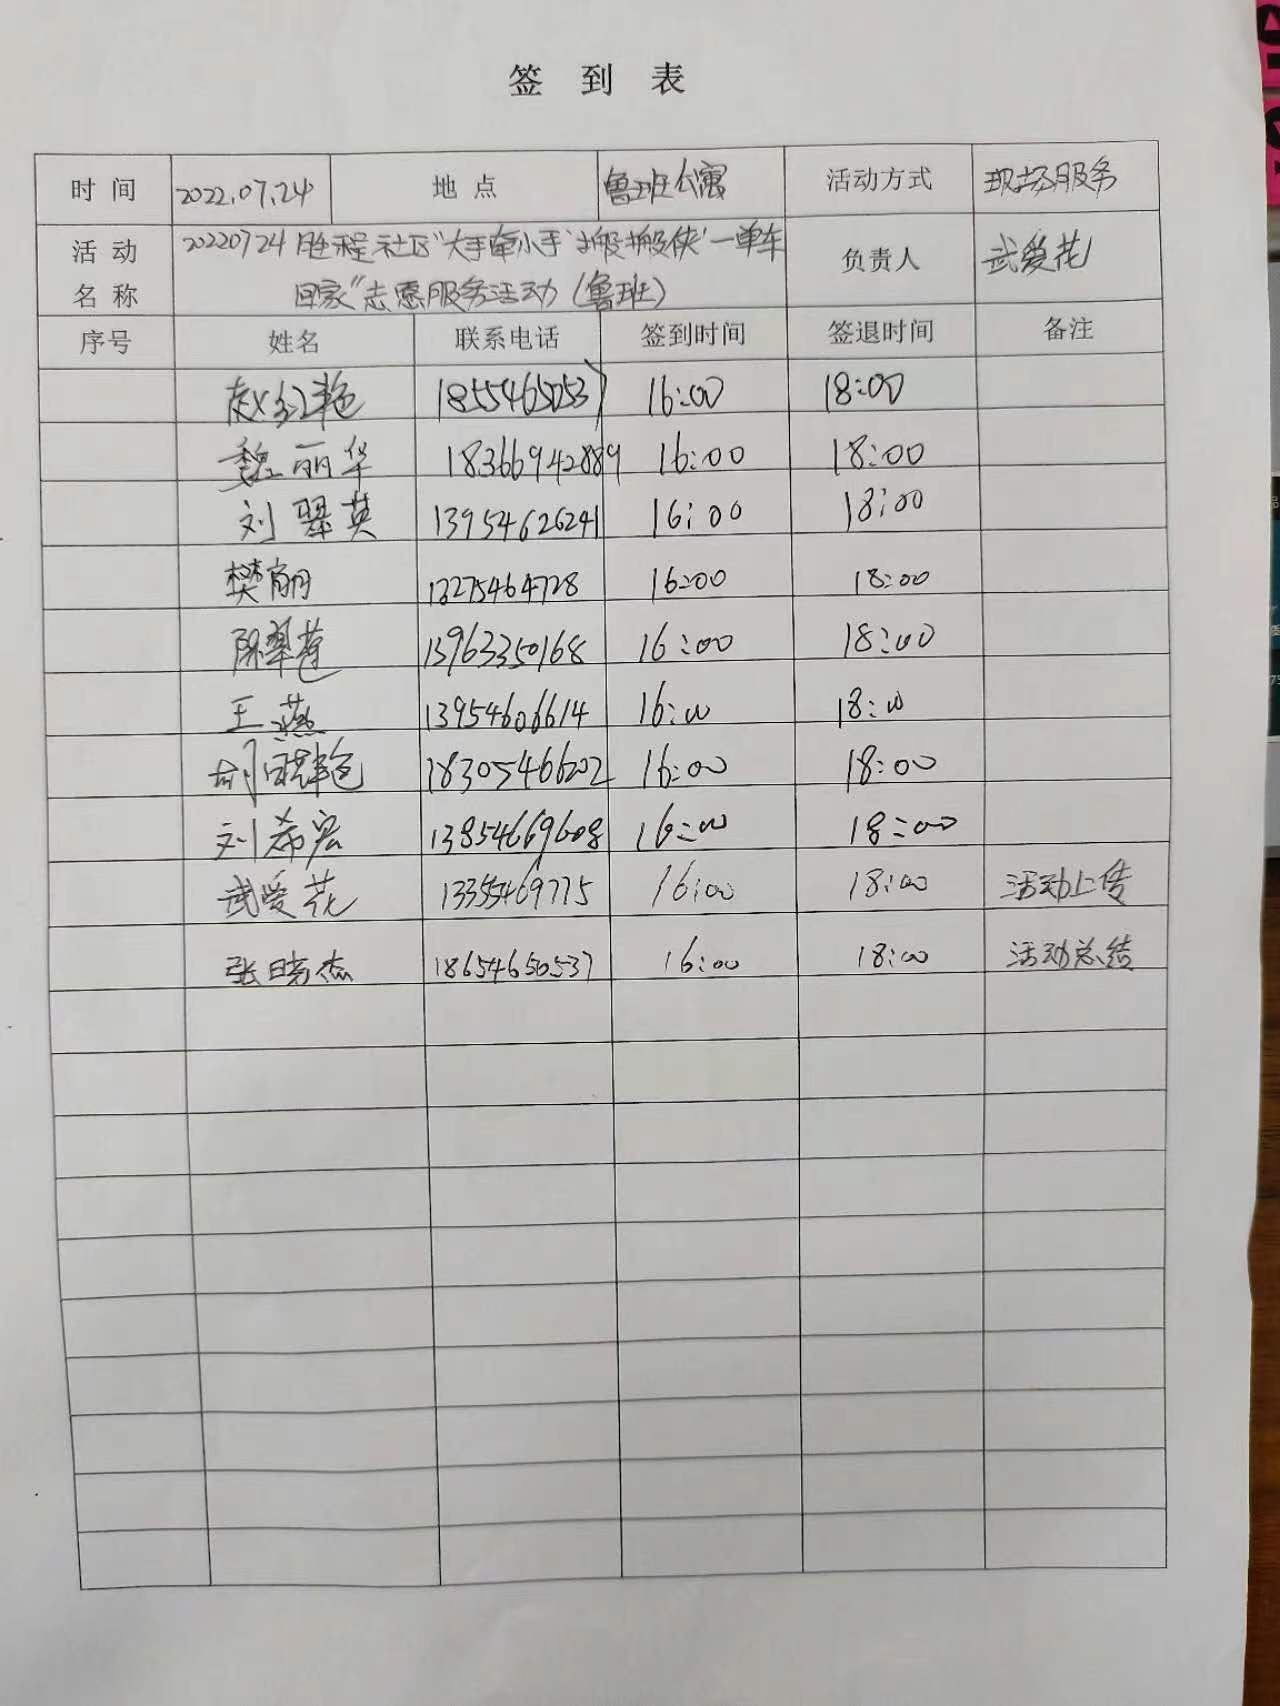 签 到 表
时 间 2022.07.24 地 点 鲁班公寓 活动方式 现场服务
活 动 名 称 20220724胜程社区"大手牵小手'搬搬侠'一单车 负责人 武爱花
回家"志愿服务活动(鲁班)
序号 姓名 联系电话 签到时间 签退时间 备注
赵红艳 18554650537 16:00 18:00
魏丽华 18366942889 16:00 18:00
刘翠英 13954626241 16:00 18:00
樊丽 13275464728 16:00 18:00
陈翠莲 13963350168 16:00 18:00
王燕 13954606614 16:00 18:00
胡晓艳 18305466202 16:00 18:00
刘希宏 13854669608 16:00 18:00
武爱花 13355469775 16:00 18:00 活动上传
张晓杰 18654650537 16:00 18:00 活动总结